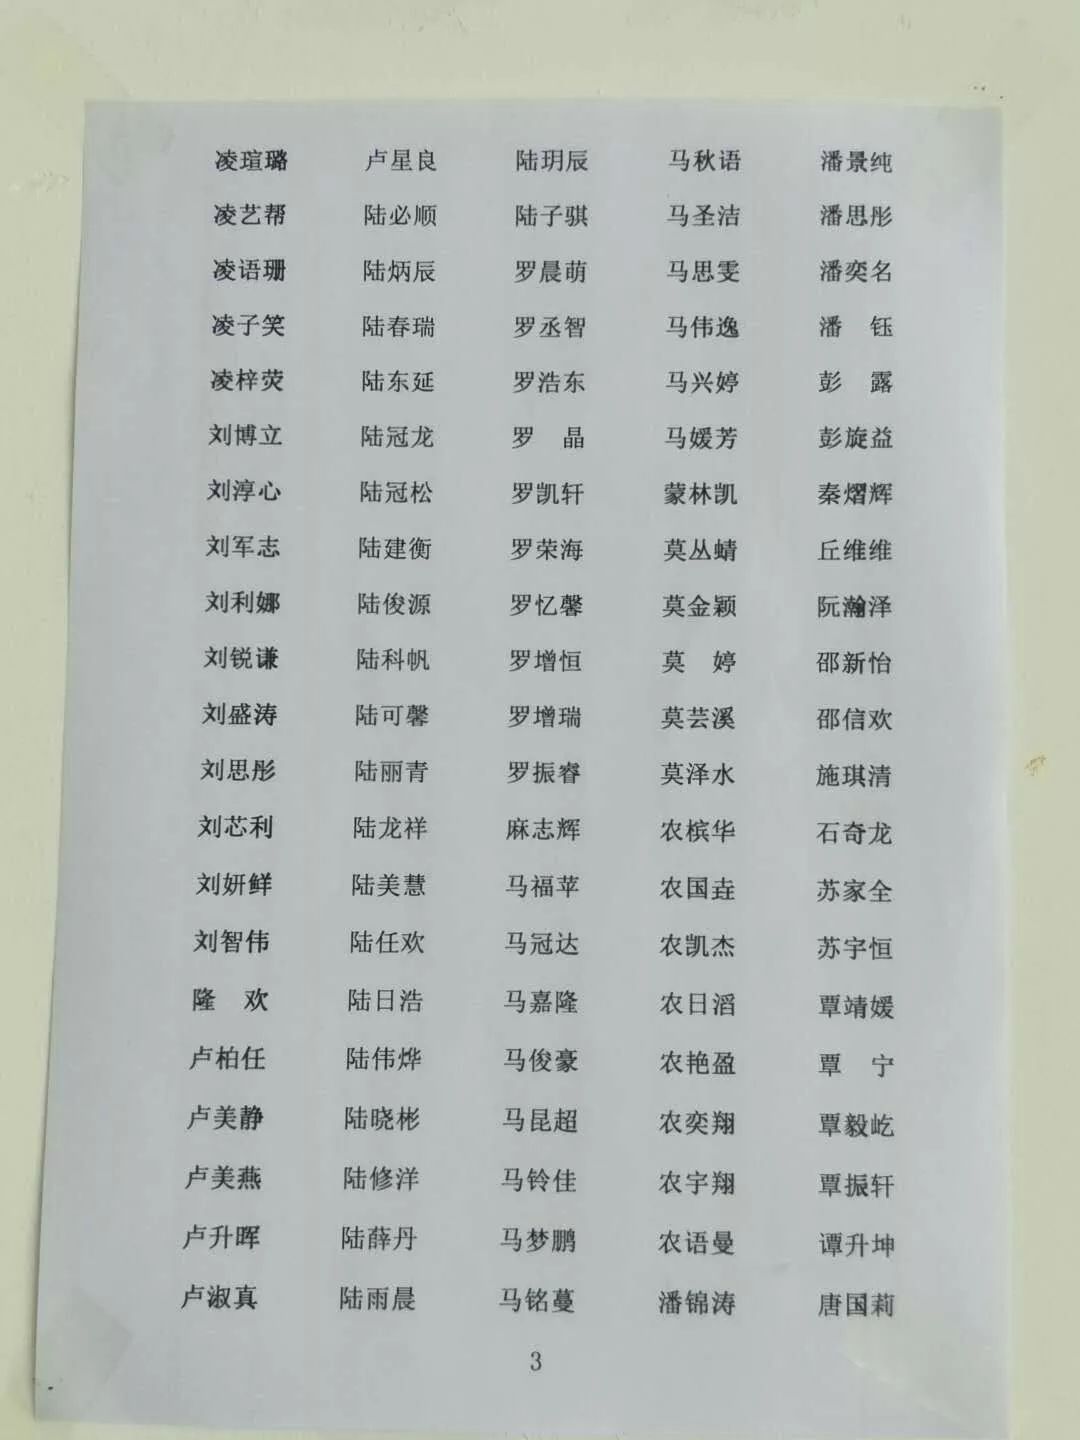 凌瑄璐 卢星良 陆玥辰 马秋语 潘景纯
凌艺帮 陆必顺 陆子骐 马圣洁 潘思彤
凌语珊 陆炳辰 罗晨萌 马思雯 潘奕名
凌子笑 陆春瑞 罗丞智 马伟逸 潘　钰
凌梓荧 陆东延 罗浩东 马兴婷 彭　露
刘博立 陆冠龙 罗　晶 马媛芳 彭旋益
刘淳心 陆冠松 罗凯轩 蒙林凯 秦熠辉
刘军志 陆建衡 罗荣海 莫丛蜻 丘维维
刘利娜 陆俊源 罗忆馨 莫金颖 阮瀚泽
刘锐谦 陆科帆 罗增恒 莫　婷 邵新怡
刘盛涛 陆可馨 罗增瑞 莫芸溪 邵信欢
刘思彤 陆丽青 罗振睿 莫泽水 施琪清
刘芯利 陆龙祥 麻志辉 农槟华 石奇龙
刘妍鲜 陆美慧 马福苹 农国垚 苏家全
刘智伟 陆任欢 马冠达 农凯杰 苏宇恒
隆　欢 陆日浩 马嘉隆 农日滔 覃靖媛
卢柏任 陆伟烨 马俊豪 农艳盈 覃　宁
卢美静 陆晓彬 马昆超 农奕翔 覃毅屹
卢美燕 陆修洋 马铃佳 农宇翔 覃振轩
卢升晖 陆薛丹 马梦鹏 农语曼 谭升坤
卢淑真 陆雨晨 马铭蔓 潘锦涛 唐国莉
3